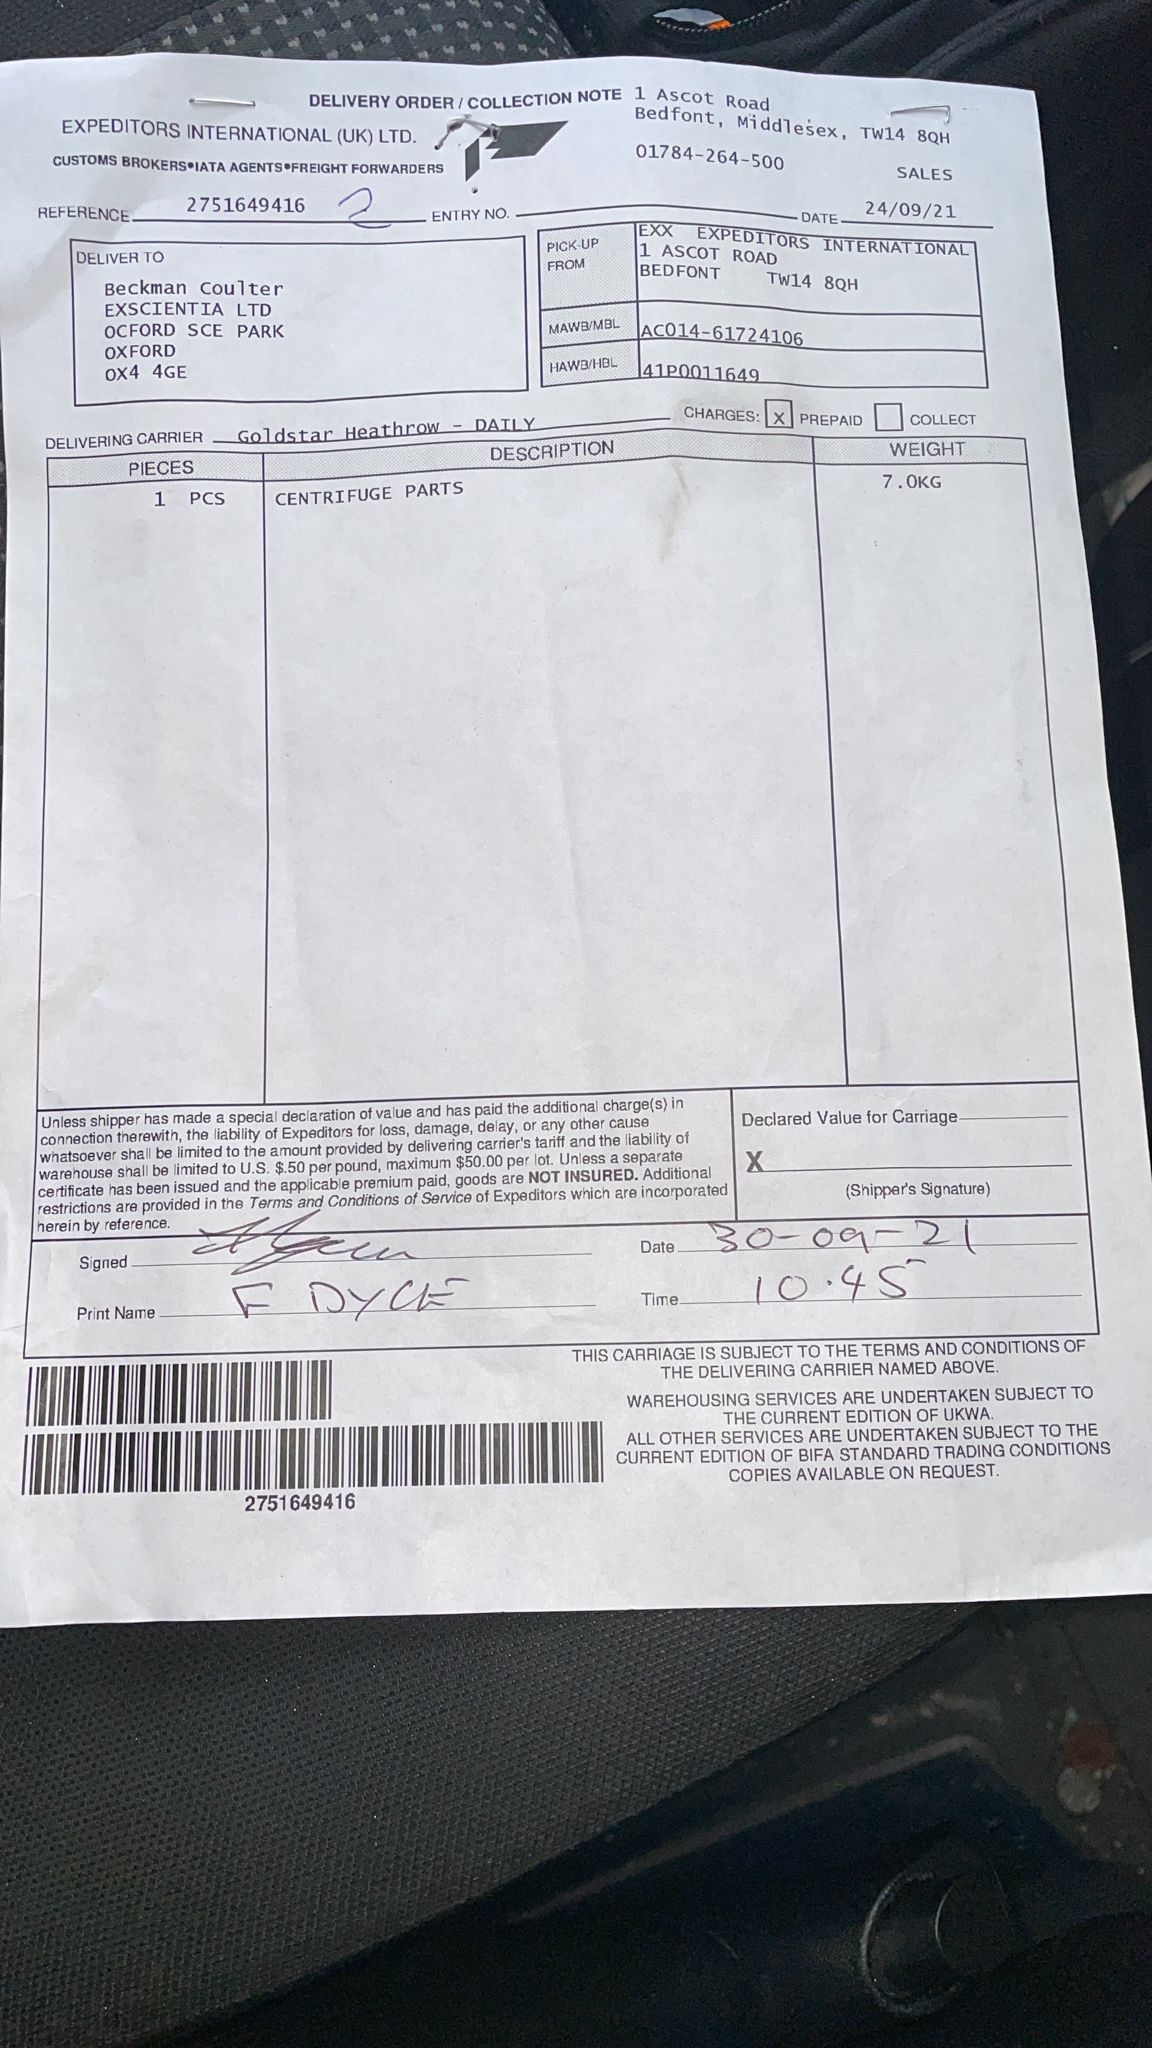 DELIVERY ORDER / COLLECTION NOTE
1 Ascot Road
Bedfont, Middlesex, TW14 8QH
EXPEDITORS INTERNATIONAL (UK) LTD.
CUSTOMS BROKERS•IATA AGENTS•FREIGHT FORWARDERS
01784-264-500
SALES
REFERENCE 2751649416 2 ENTRY NO. DATE 24/09/21
DELIVER TO
Beckman Coulter
EXSCIENTIA LTD
OCFORD SCE PARK
OXFORD
OX4 4GE
PICK-UP FROM
EXX EXPEDITORS INTERNATIONAL
1 ASCOT ROAD
BEDFONT TW14 8QH
MAWB/MBL AC014-61724106
HAWB/HBL 41P0011649
DELIVERING CARRIER Goldstar Heathrow - DAILY
CHARGES: X PREPAID COLLECT
PIECES DESCRIPTION WEIGHT
1 PCS CENTRIFUGE PARTS 7.0KG
Unless shipper has made a special declaration of value and has paid the additional charge(s) in
connection therewith, the liability of Expeditors for loss, damage, delay, or any other cause
whatsoever shall be limited to the amount provided by delivering carrier's tariff and the liability of
warehouse shall be limited to U.S. $.50 per pound, maximum $50.00 per lot. Unless a separate
certificate has been issued and the applicable premium paid, goods are NOT INSURED. Additional
restrictions are provided in the Terms and Conditions of Service of Expeditors which are incorporated
herein by reference.
Declared Value for Carriage
X
(Shipper's Signature)
Signed
Date 30-09-21
Print Name F DYCE
Time 10.45
THIS CARRIAGE IS SUBJECT TO THE TERMS AND CONDITIONS OF
THE DELIVERING CARRIER NAMED ABOVE.
WAREHOUSING SERVICES ARE UNDERTAKEN SUBJECT TO
THE CURRENT EDITION OF UKWA.
ALL OTHER SERVICES ARE UNDERTAKEN SUBJECT TO THE
CURRENT EDITION OF BIFA STANDARD TRADING CONDITIONS
COPIES AVAILABLE ON REQUEST.
2751649416